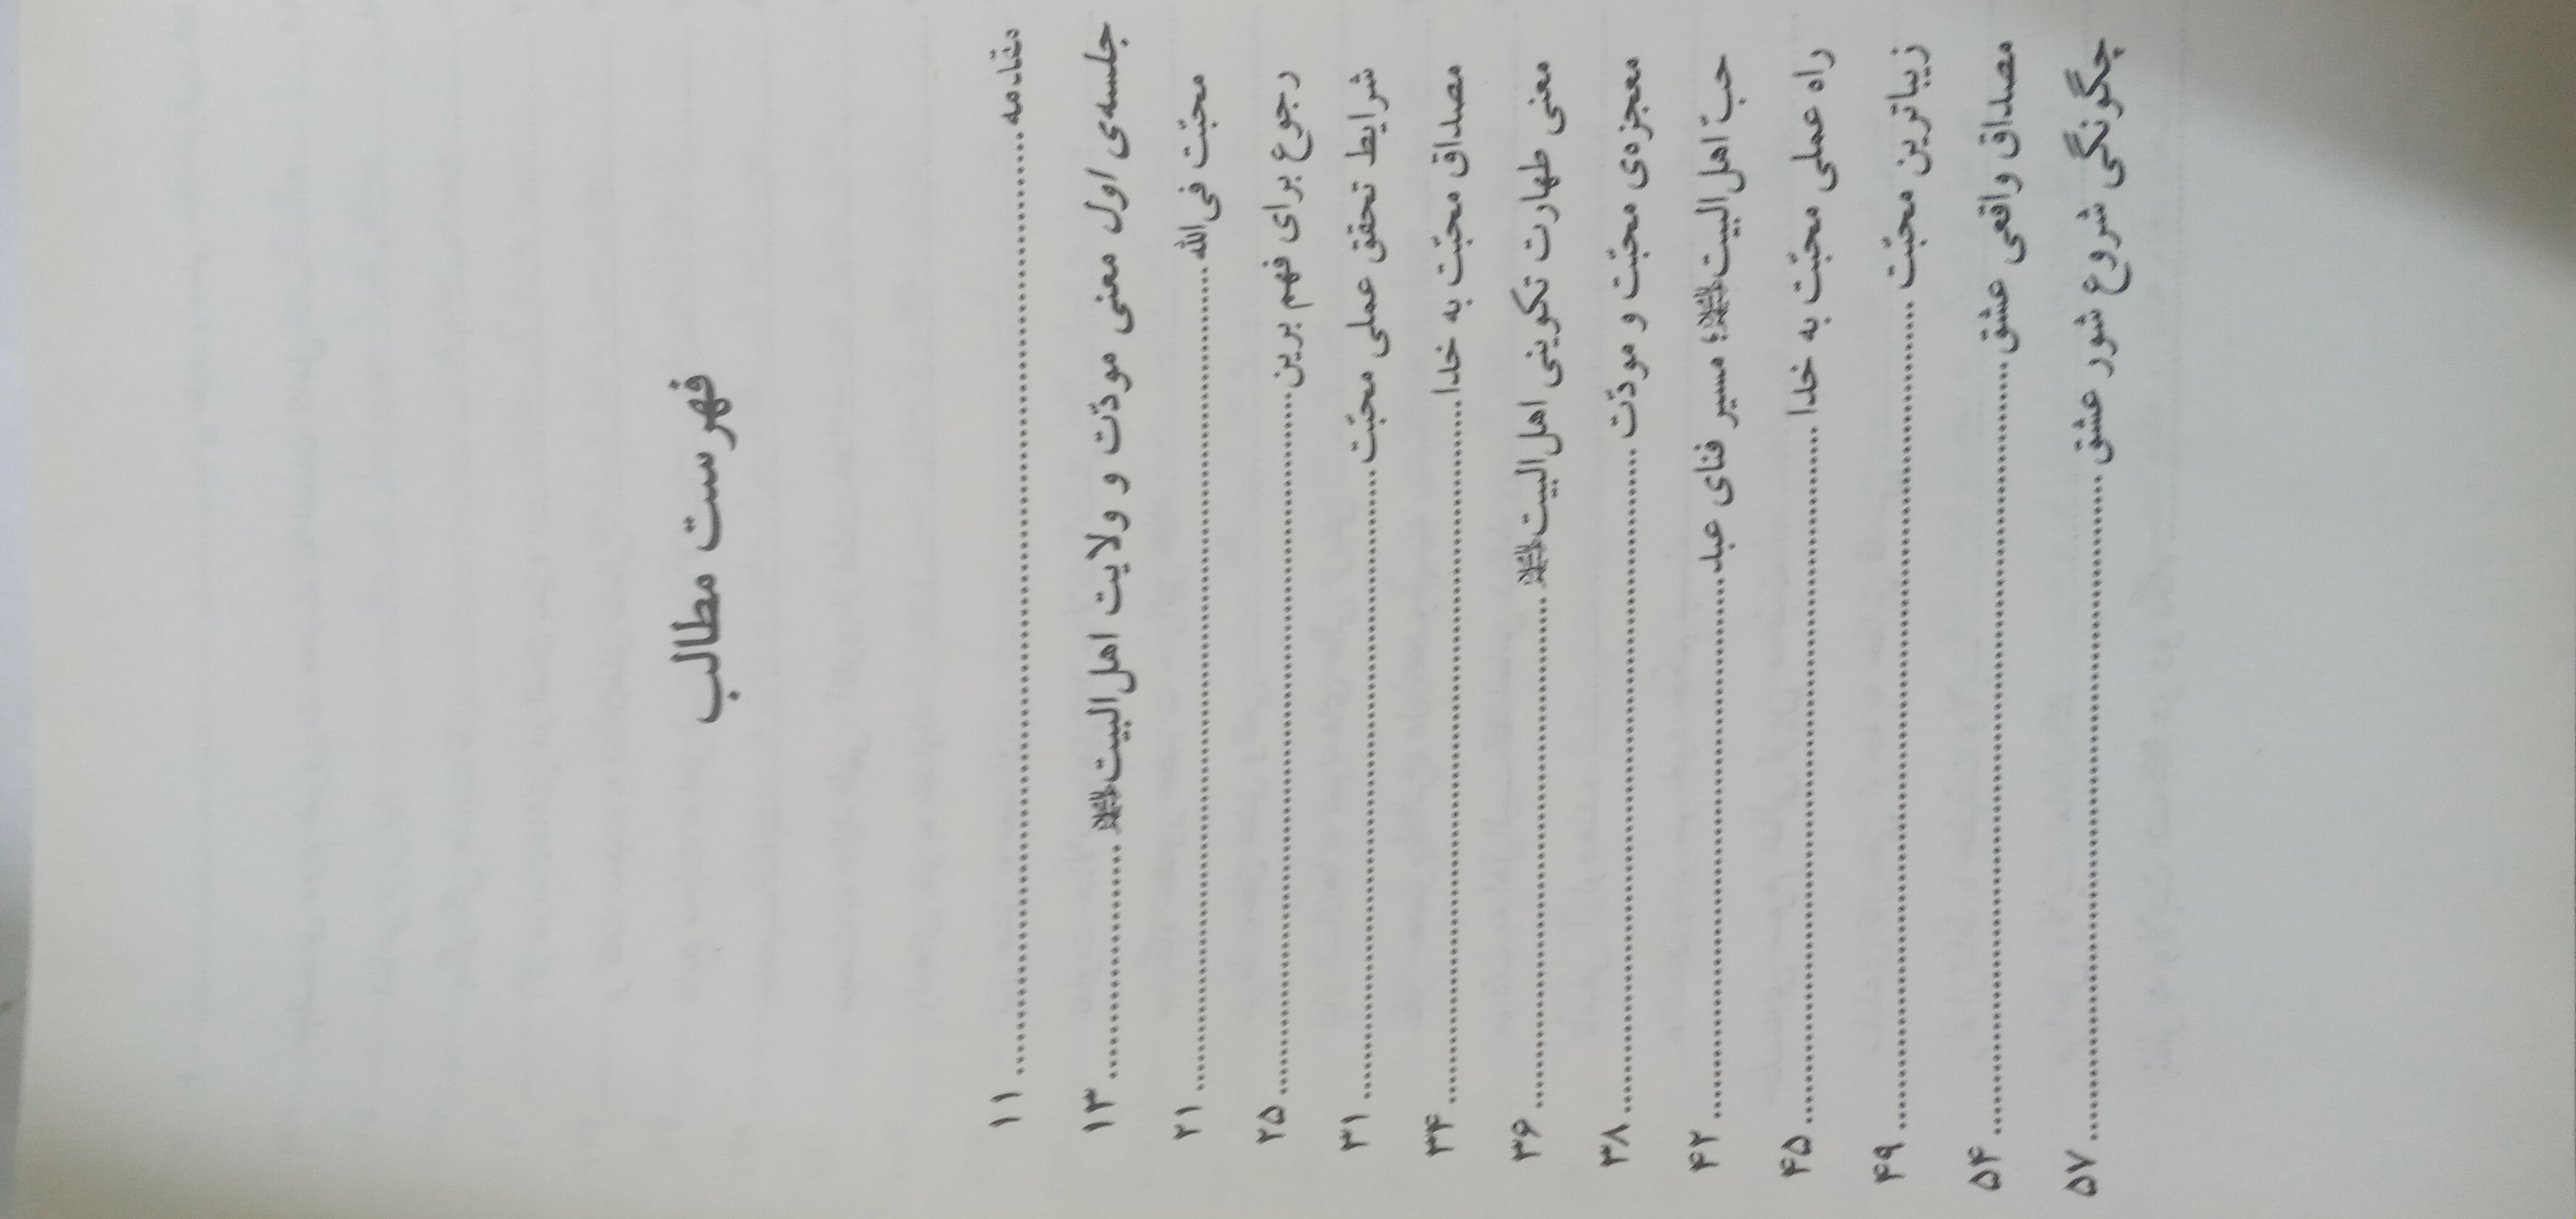 فهرست مطالب
مقدمه ........ ۱۱
جلسه‌ی اول معنی مودّت و ولایت اهل‌البیت علیهم‌السلام ........ ۱۳
محبّت فی‌الله ........ ۲۱
رجوع برای فهم برین ........ ۲۵
شرایط تحقق عملی محبّت ........ ۳۱
مصداق محبّت به خدا ........ ۳۴
معنی طهارت تکوینی اهل‌البیت علیهم‌السلام ........ ۳۶
معجزه‌ی محبّت و مودّت ........ ۳۸
حبّ اهل‌البیت علیهم‌السلام؛ مسیر فنای عبد ........ ۴۲
راه عملی محبّت به خدا ........ ۴۵
زیباترین محبّت ........ ۴۹
مصداق واقعی عشق ........ ۵۴
چگونگی شروع شور عشق ........ ۵۷